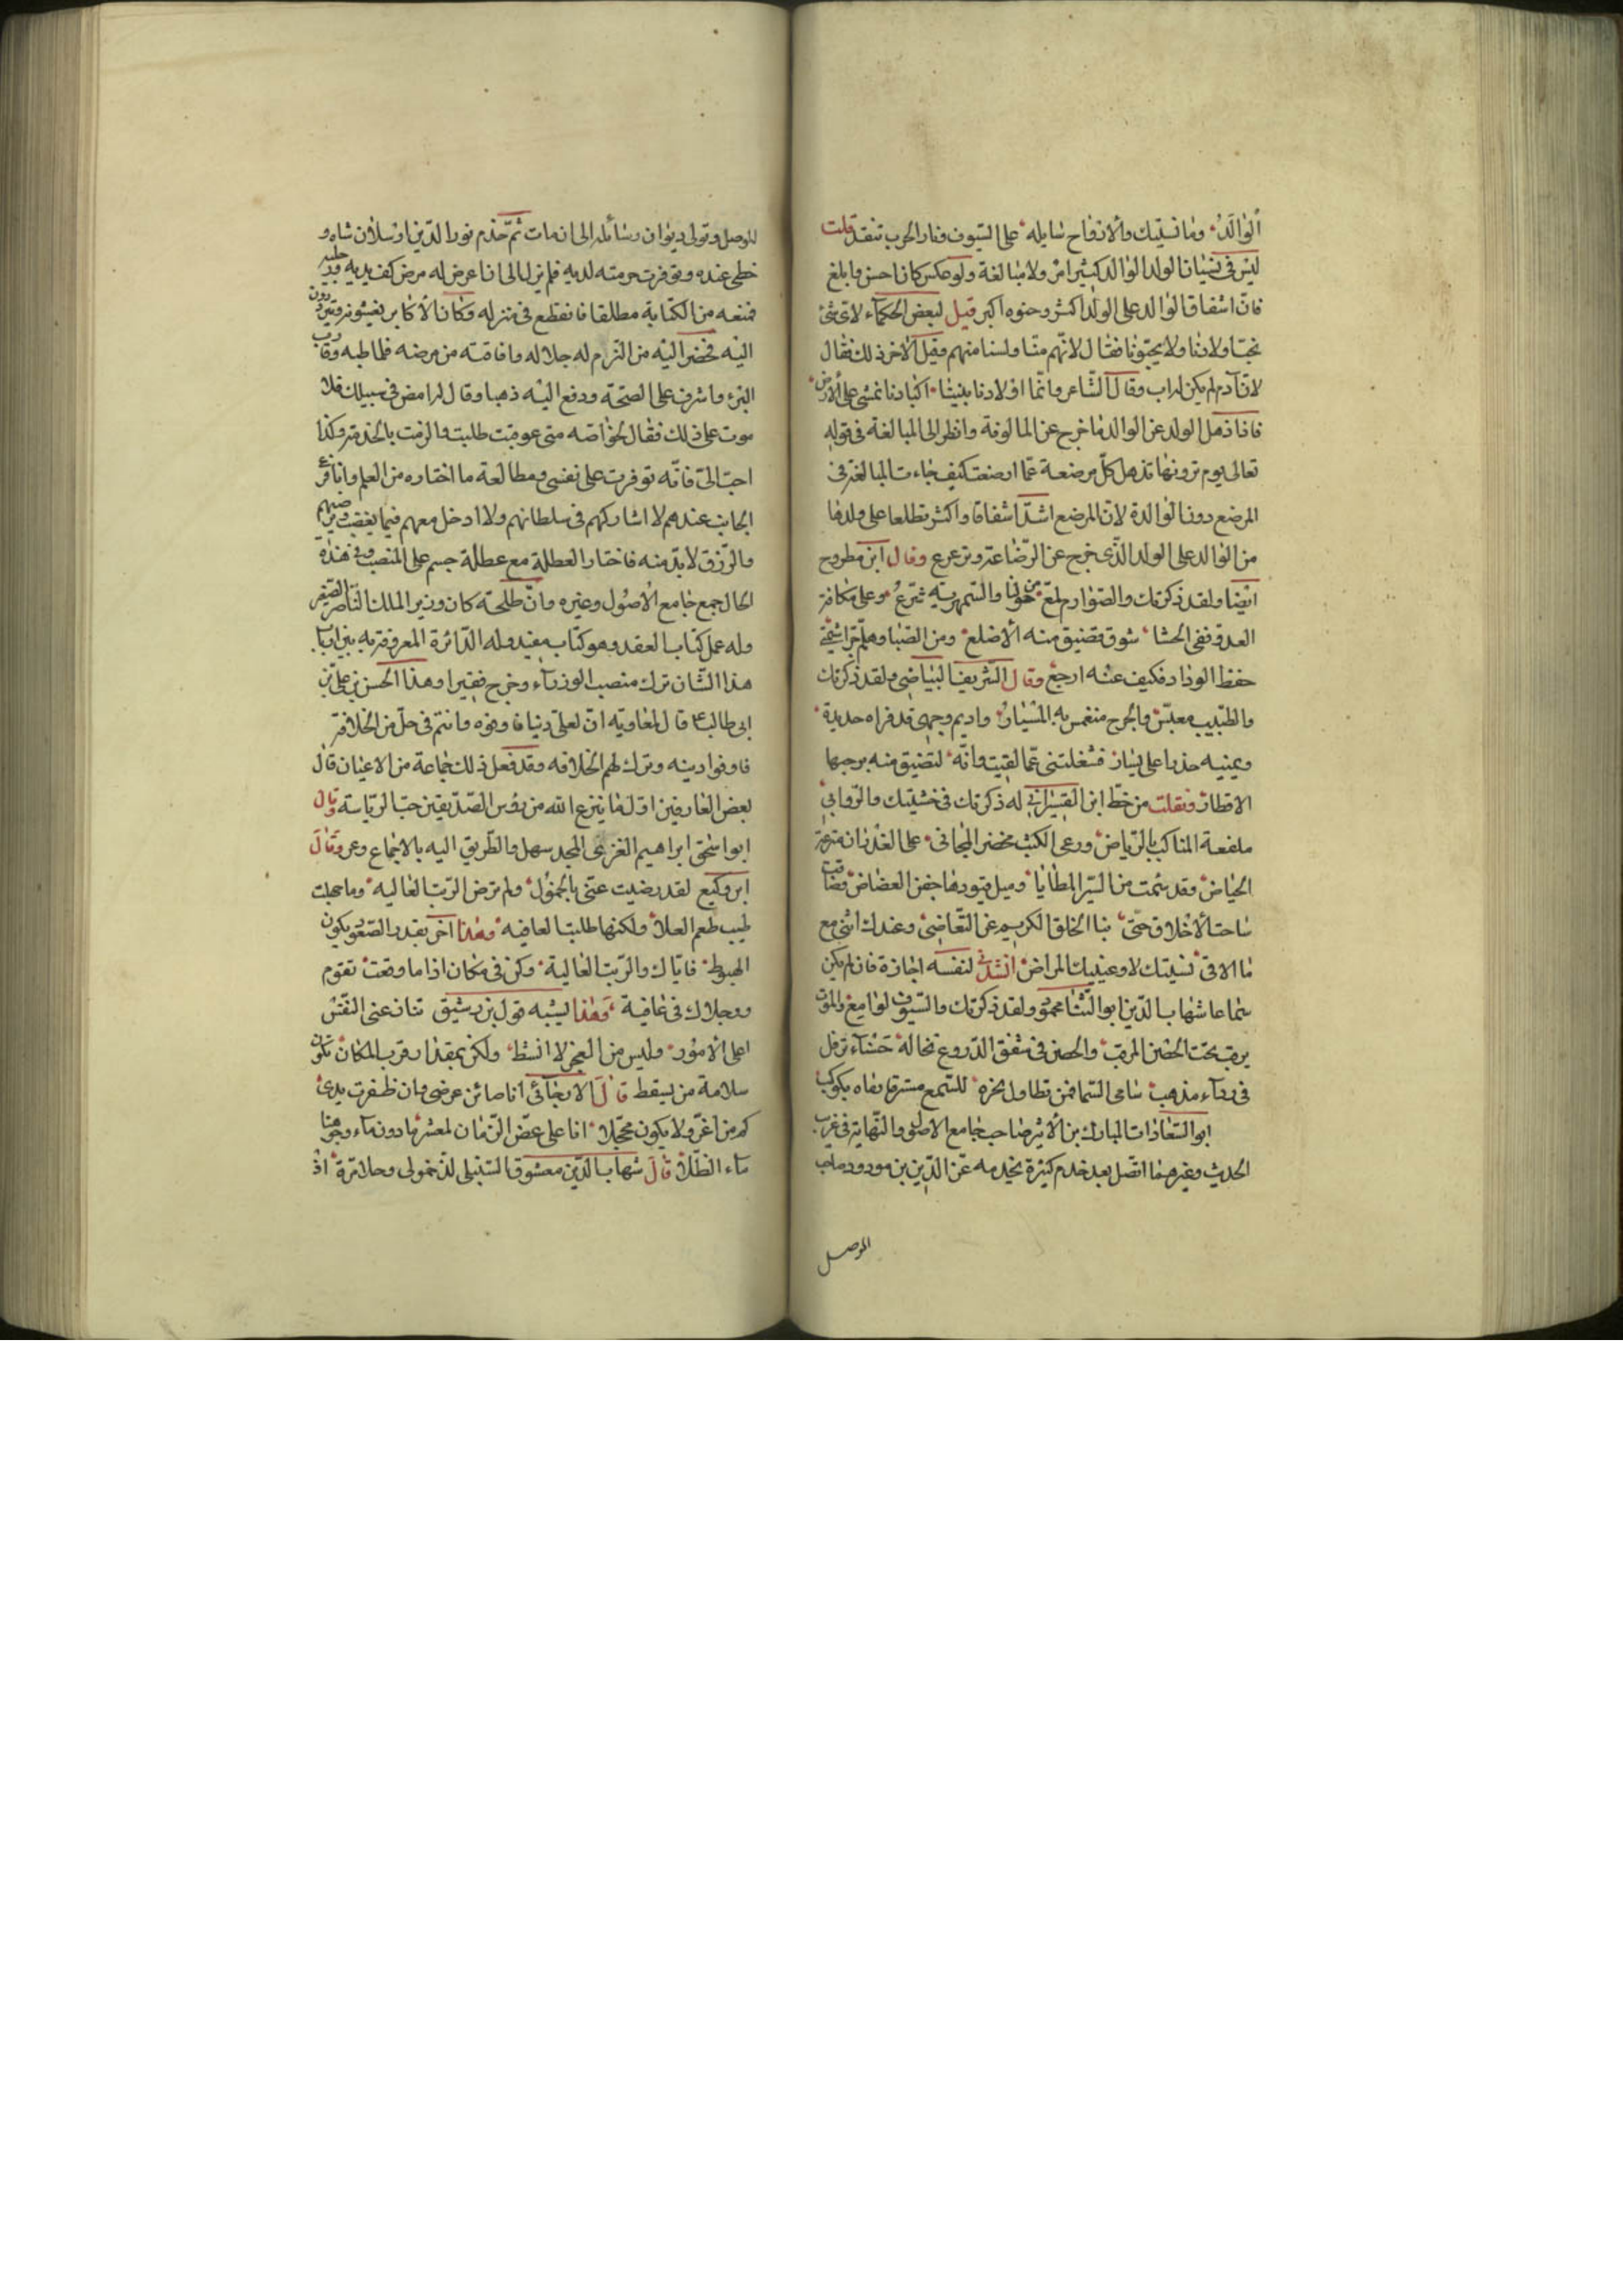 الوالد وما نسيتك والارواح سايله على السيوف ونار الحرب تتقد قلت
ليس في نسيان الولد الوالد كبير امر ولا مبالغة ولو عكس كان احسن وابلغ
فان اشفاق الوالد على الولد اكثر وحنوه اكبر قيل لبعض الحكماء لاي شئ
نحب اولادنا ولا يحبونا فقال لانهم منا ولسنا منهم وقيل لاخر ذلك فقال
لان آدم لم يكن له اب وقال الشاعر وانما اولادنا بيننا اكبادنا تمشي على الارض
فاذا ذهل الولد عن الوالد فما خرج عن المالوفة وانظر الى المبالغة في قوله
تعالى يوم ترونها تذهل كل مرضعة عما ارضعت كيف جاءت المبالغة في
المرضع دون الوالدة لان المرضع اشد اشفاقا واكثر تطلعا على ولدها
من الوالد على الولد الذي خرج عن الرضاعة وترعرع وقال ابن مطروح
ايضا ولقد ذكرتك والصوارم لمع من حولنا والسمهرية شرع وعلى مكافة
العدو ففي الحشا شوق تضيق منه الاضلع ومن الصبا وهلم جرا شيمتي
حفظ الوداد فكيف عنه ارجع وقال الشريف البياضي ولقد ذكرتك
والطبيب معبس والجرح منغمس به المسبار واديم وجهي قد فراه حديده
ويمينه حذرا على يسار فشغلتني عما لقيت وانه لتضيق منه برحبها
الاقطار ونقلت من خط ابن القيسراني له ذكرتك في خشيتك والروابي
ملفعة المناكب بالرياض ورعي الكثب مخضر المجاني على الغدران مترعة
الحياض وقد سئمت من السير المطايا وميل قتودها جفن العضاض وضاقت
ساحة الاخلاق حتى بنا الخلق الكريم عن التغاضي وعندك انني مع
ما الاقي نسيتك لا وعينيك المراض انشدني لنفسه اجازة فان لم يكن
سماعا شهاب الدين ابو الثنا محمود ولقد ذكرتك والسيوف لوامع والموت
يرقب تحت الحصن المرقب والحصن في شفق الدروع تخاله حسناء ترفل
في رداء مذهب سامي السما فمن تطاول نحوه للسمع مسترقا رماه بكوكب
ابو السعادات المبارك بن الاثير صاحب جامع الاصول والنهاية في غريب
الحديث وغيرهما اتصل بعد خدم كثيرة بخدمة عز الدين بن مودود صاحب
الموصل
الموصل وتولى ديوان رسائله الى ان مات ثم خدم نور الدين ارسلان شاه و
خطي عنده وتوفرت حرمته لديه فلم يزل الى ان عرض له مرض كف يديه ورجليه
فمنعه من الكتابة مطلقا فانقطع في منزله وكان الاكابر يغشونه ويترددون
اليه فحضر اليه من التزم له جلاله وافاقته من مرضه فلما طبه وقارب
البرء واشرف على الصحة ودفع اليه ذهبا وقال له امض في سبيلك فلا
موت على ذلك فقال لخواصه متى عوفيت طلبت والزمت بالخدمة وكذا
احب الي فانه توفرت على نفسي ومطالعة ما اختاره من العلم وانا وافر
الجانب عندهم لا اشاركهم في سلطانهم ولا ادخل معهم فيما يغضب ويرضيهم
والرزق لا بد منه فاختار العطلة مع عطلة جسم على المنصب وفي هذه
الحال جمع جامع الاصول وغيره وابن طلحة كان وزير الملك الناصر الصغير
وله عمل كتاب العقد وهو كتاب مفيد وله الدائرة المعروفة به بين ارباب
هذا الشان ترك منصب الوزراء وخرج فقيرا وهذا الحسن بن علي بن
ابي طالب ع قال لمعاوية ان لعلي دينا فاوفوه وانتم في حل من الخلافة
فاوفوا دينه وترك لهم الخلافه وقد فعل ذلك جماعة من الاعيان قال
بعض العارفين اول ما ينزع الله من رؤس الصديقين حب الرياسة وقال
ابو اسحق ابراهيم الغزي المجد سهل والطريق اليه بالاجماع وعر وقال
ابن وكيع لقد رضيت عني بالخمول ولم ترض الرتب العاليه وما جهلت
طيب طعم العلا ولكنها طلبت العافيه وهذا اخر بقدر الصعود يكون
الهبوط فاياك والرتب العالية وكن في مكان اذا ما وقعت تقوم
ورجلاك في عافية وهذا يشبه قول بن رشيق تنازعني النفس
اعلى الامور وليس من العجز لا انشط ولكن بمقدار قرب المكان تكون
سلامة من يسقط قال الارجائي انا صائن عرضي وان ظفرت يدي
كم من اغر ولا يكون محجلا انا على عض الزمان لمعشر ما دون ماء وجوهنا
ماء الطلا قال شهاب الدين معشوق الشنبلي لذ خمولي وحلا مره اذ